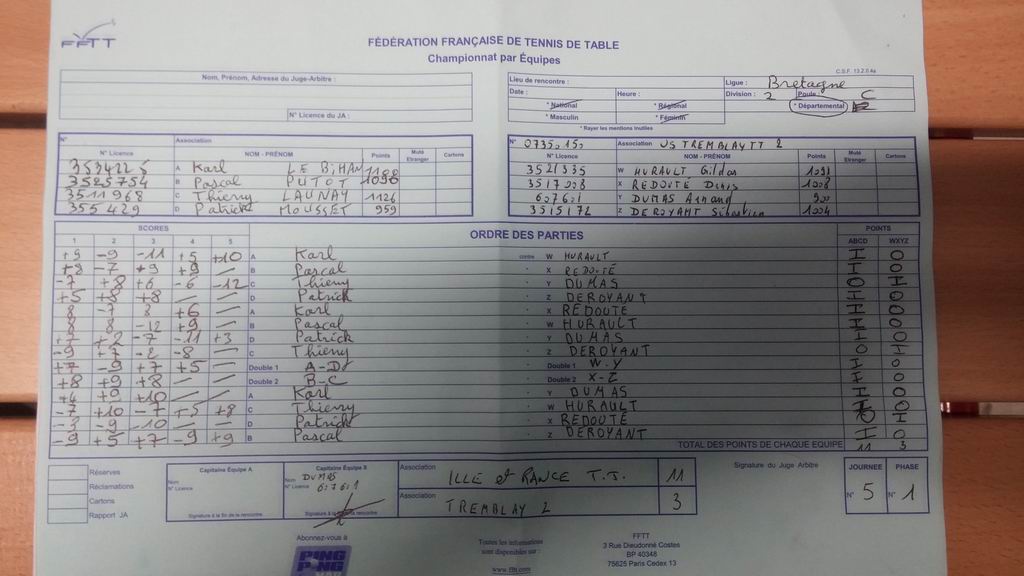 FFTT
FÉDÉRATION FRANÇAISE DE TENNIS DE TABLE
Championnat par Équipes
C.S.F. 13.2.5
Nom, Prénom, Adresse du Juge-Arbitre :
N° Licence du JA :
Lieu de rencontre : Ligue : Bretagne
Date : Heure : Division : 2 Poule : C
* National * Régional * Départemental
* Masculin * Féminin
* Rayer les mentions inutiles
N° Association
N° Licence NOM - PRÉNOM Points Muté Etranger Cartons
A Karl LE BIHAN 1188
3525754 B Pascal PUTOT 1096
3511968 C Thierry LAUNAY 1126
355 429 D Patrick MOUSSET 959
N° 0735.150 Association US TREMBLAYTT 2
N° Licence NOM - PRÉNOM Points Muté Etranger Cartons
3521335 W HURAULT Gildas
3517008 X REDOUTÉ Denis 1008
607601 Y DUMAS Arnaud 900
3515172 Z DEROYANT Sébastien 1004
SCORES ORDRE DES PARTIES POINTS
1 2 3 4 5 ABCD WXYZ
+9 -9 -11 +5 +10 A Karl contre W HURAULT I 0
+8 -7 +9 +9 — B Pascal - X REDOUTÉ I 0
-7 +8 +6 -6 -12 C Thierry - Y DUMAS 0 I
+5 +8 +8 — — D Patrick - Z DEROYANT I 0
8 -7 8 +6 — A Karl - X REDOUTE I 0
8 8 -12 +9 — B Pascal - W HURAULT I 0
+7 +2 -7 -11 +3 D Patrick - Y DUMAS I 0
-9 +7 -2 -8 — C Thierry - Z DEROYANT 0 I
+7 -9 +7 +5 — Double 1 A-D - Double 1 W-Y I 0
+8 +9 +8 — — Double 2 B-C - Double 2 X-Z I 0
+4 +9 +10 — — A Karl - Y DUMAS I 0
-7 +10 -7 +5 +8 C Thierry - W HURAULT I 0
-3 -9 -10 — — D Patrick - X REDOUTE 0 I
-9 +5 +7 -9 +9 B Pascal - Z DEROYANT I 0
TOTAL DES POINTS DE CHAQUE EQUIPE 11 3
Réserves
Réclamations
Cartons
Rapport JA
Capitaine Équipe A
Nom
N° Licence
Signature à la fin de la rencontre
Capitaine Équipe B
Nom DUMAS
N° Licence 607601
Signature à la fin de la rencontre
Association ILLE et RANCE T.T. 11
Association TREMBLAY 2 3
Signature du Juge Arbitre
JOURNEE PHASE
N° 5 N° 1
Abonnez-vous à
PING
PONG
Toutes les informations
sont disponibles sur :
www.fftt.com
FFTT
3 Rue Dieudonné Costes
BP 40348
75625 Paris Cedex 13